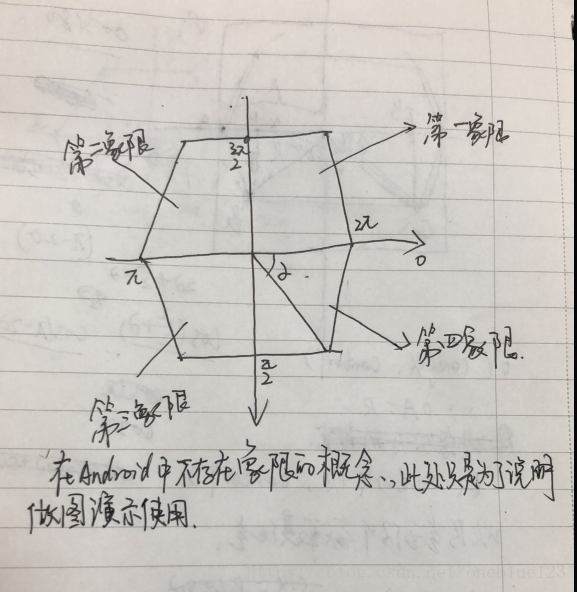 第二象限
第一象限
3π/2
2π
0
π
α
第四象限.
π/2
第三象限
在Android中不存在象限的概念,此处只是为了说明
做图演示使用.